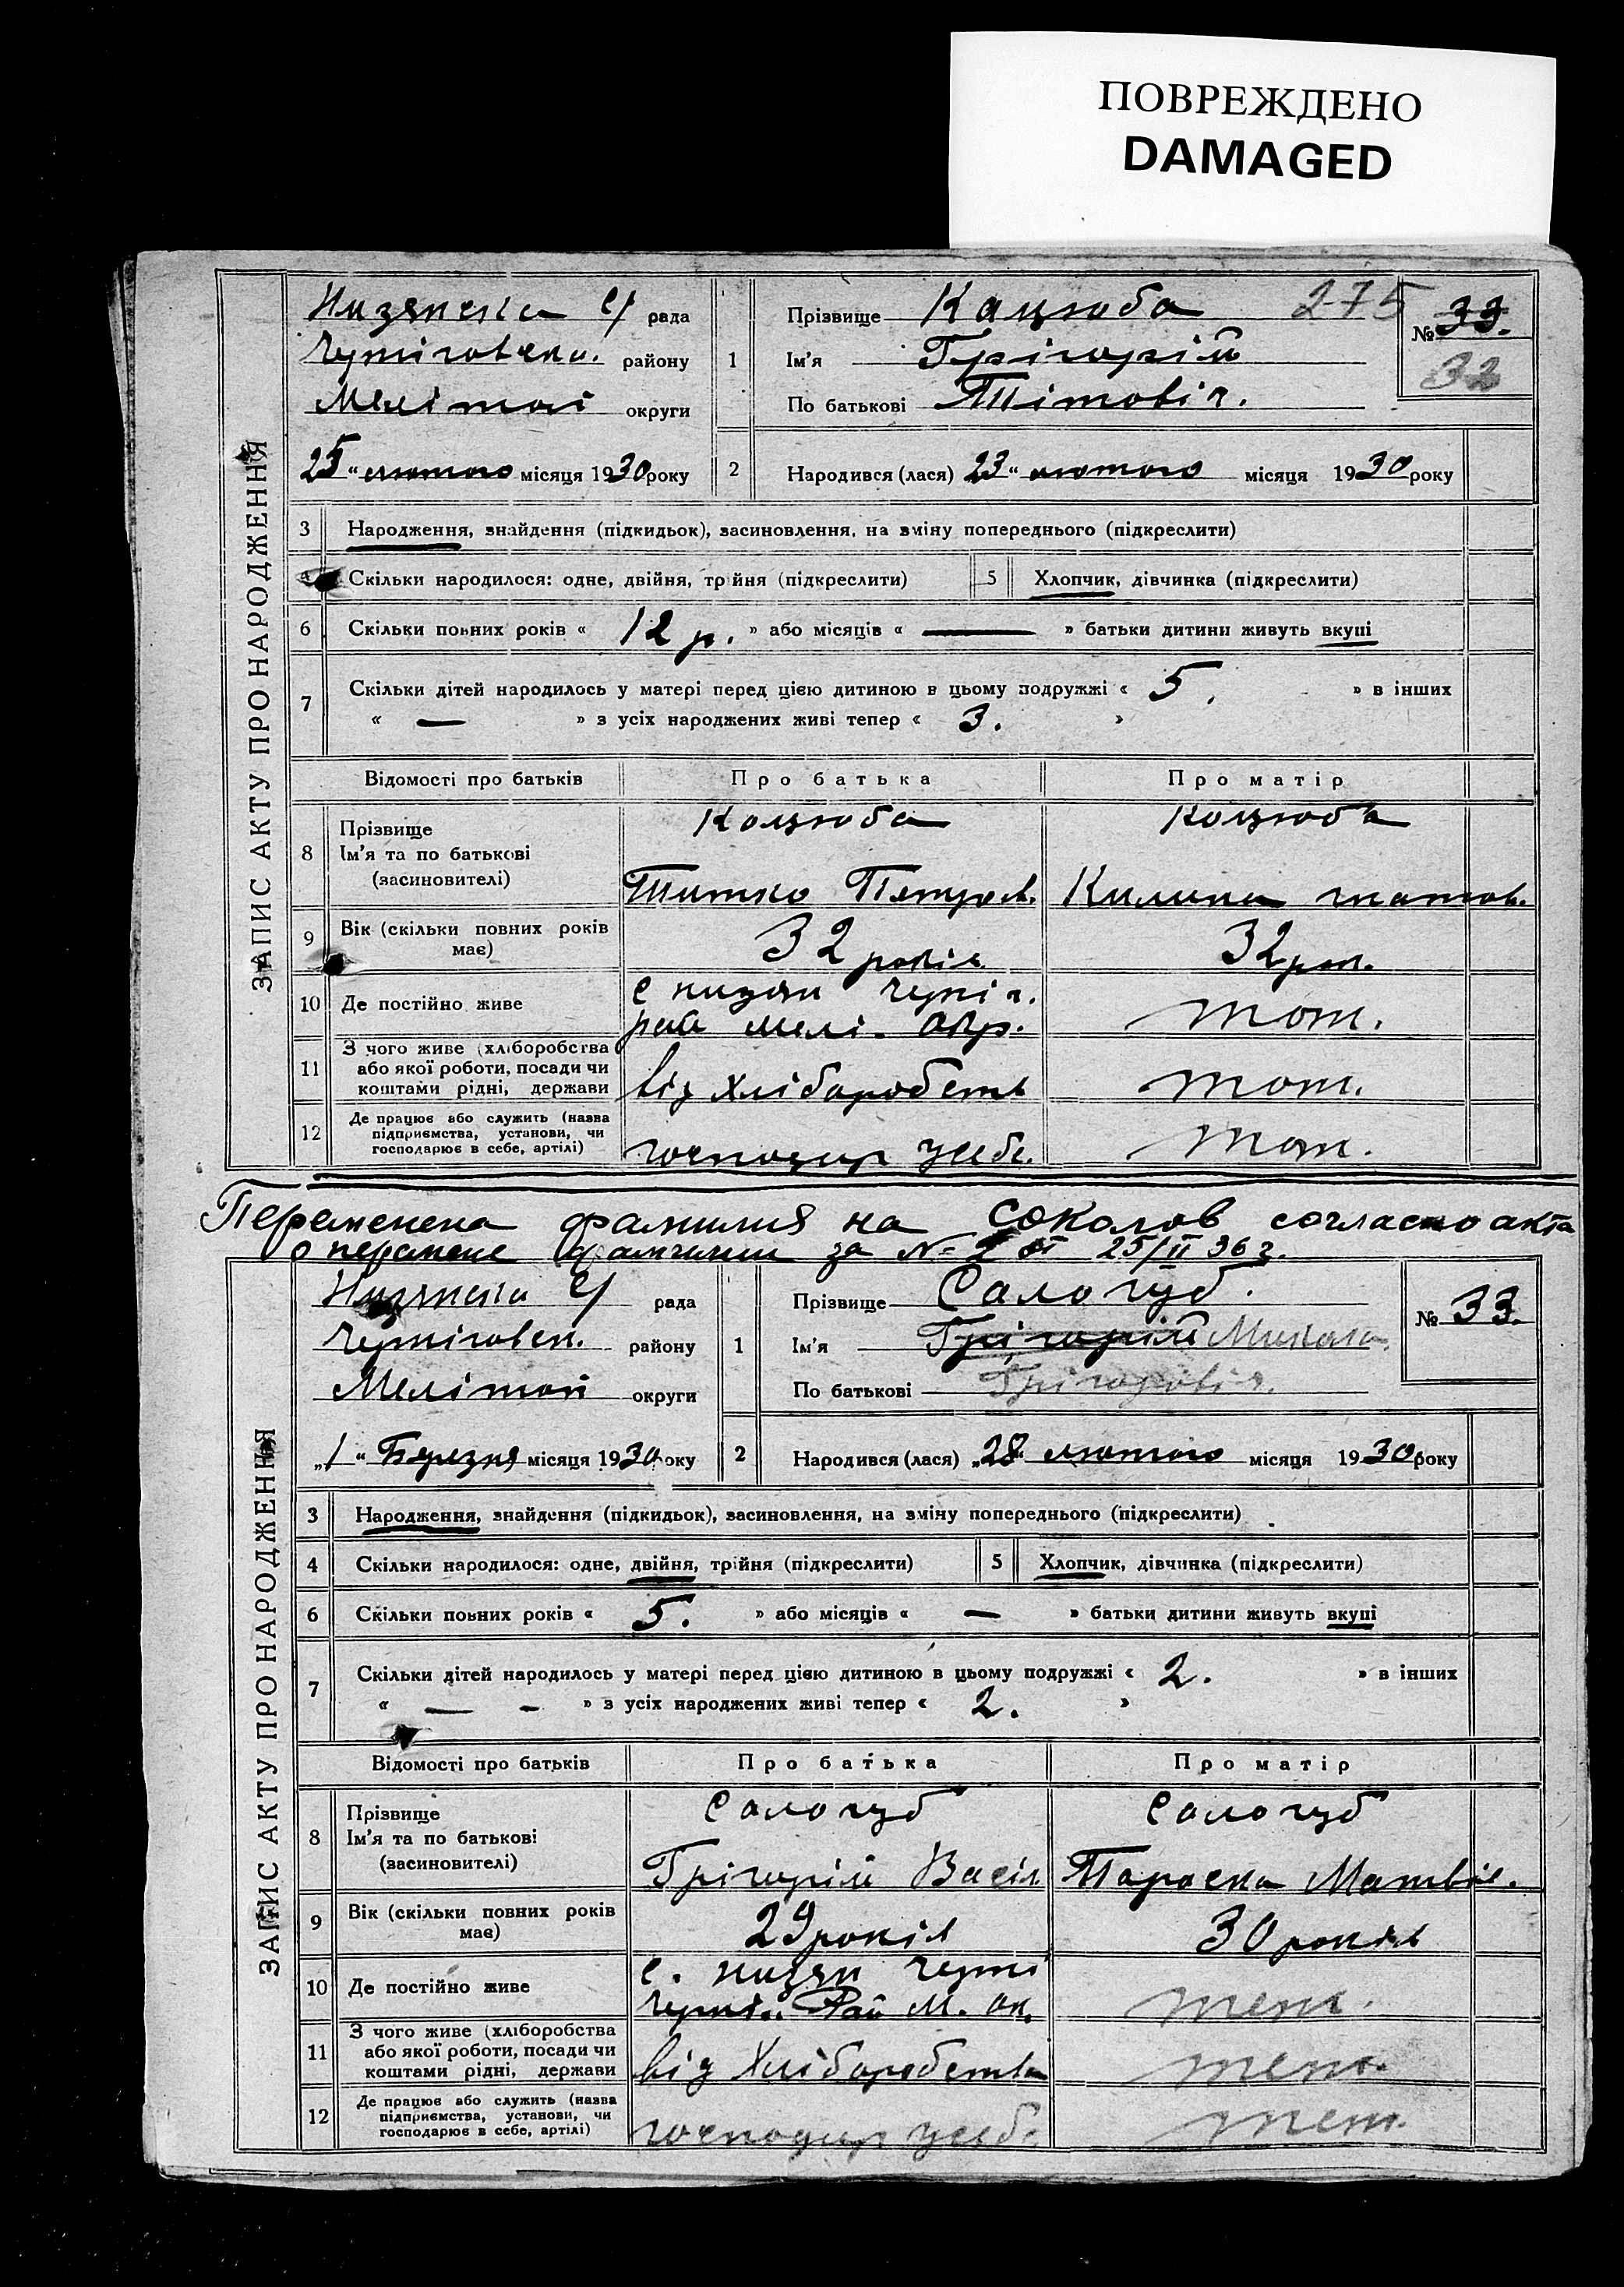 ПОВРЕЖДЕНО
DAMAGED
ЗАПИС АКТУ ПРО НАРОДЖЕННЯ
Низянська с/ рада
Чернігівськ. району
Мелітоп округи
25 " лютого місяця 1930 року
1 Прізвище Кацюба 275
Ім'я Грігорій
По батькові Тітовіч.
№ 33.
32
2 Народився (лася) 23 " лютого місяця 1930 року
3 Народження, знайдення (підкидьок), засиновлення, на зміну попереднього (підкреслити)
Скільки народилося: одне, двійня, трійня (підкреслити) 5 Хлопчик, дівчинка (підкреслити)
6 Скільки повних років « 12 р. » або місяців « — » батьки дитини живуть вкупі
7 Скільки дітей народилось у матері перед цією дитиною в цьому подружжі « 5. » в інших
« — » з усіх народжених живі тепер « 3. »
Відомості про батьків Про батька Про матір
8 Прізвище Коцюба Коцюба
Ім'я та по батькові
(засиновителі) Титко Петров. Килина
9 Вік (скільки повних років має) 32 років 32 рок.
10 Де постійно живе с низяни Черніг. тот.
рай мелі. окр.
11 З чого живе (хліборобства або якої роботи, посади чи коштами рідні, держави від хліборобств тот.
12 Де працює або служить (назва підприємства, установи, чи господарює в себе, артілі) господар усебе. тот.
Переменена фамилия на Соколов согласно акта
о перемене фамилии за № 2 от 25/II 36 г.
ЗАПИС АКТУ ПРО НАРОДЖЕННЯ
Низянська с/ рада
Черніговск. району
Мелітоп округи
„1 " Березня місяця 1930 року
1 Прізвище Сологуб.
Ім'я Грігорій Микола
По батькові Грігоровіч.
№ 33.
2 Народився (лася) „28 " лютого місяця 1930 року
3 Народження, знайдення (підкидьок), засиновлення, на зміну попереднього (підкреслити)
4 Скільки народилося: одне, двійня, трійня (підкреслити) 5 Хлопчик, дівчинка (підкреслити)
6 Скільки повних років « 5. » або місяців « — » батьки дитини живуть вкупі
7 Скільки дітей народилось у матері перед цією дитиною в цьому подружжі « 2. » в інших
« — - » з усіх народжених живі тепер « 2. »
Відомості про батьків Про батька Про матір
8 Прізвище Сологуб Сологуб
Ім'я та по батькові
(засиновителі) Грігорій Васіл Параска Матвіє.
9 Вік (скільки повних років має) 29 років 30 років
10 Де постійно живе с. низян Черні
Черні. Рай М. ок.
11 З чого живе (хліборобства або якої роботи, посади чи коштами рідні, держави від Хліборобства
12 Де працює або служить (назва підприємства, установи, чи господарює в себе, артілі) господар усебе.